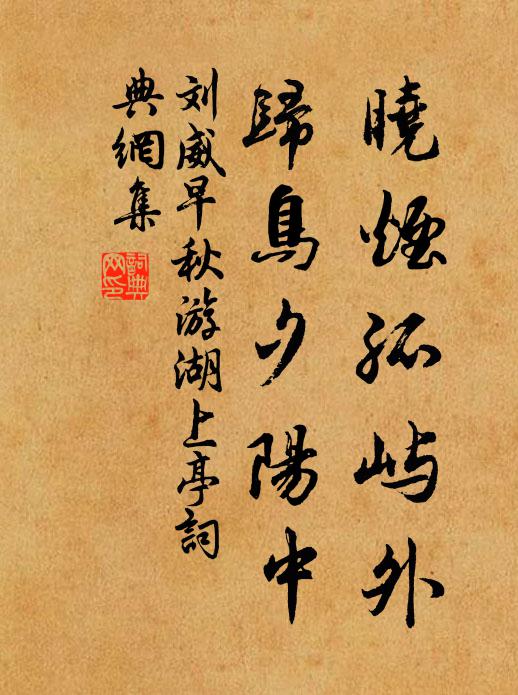 曉煙孤屿外
歸鳥夕陽中
刘威早秋游湖上亭詞
典網集
詞典
网印